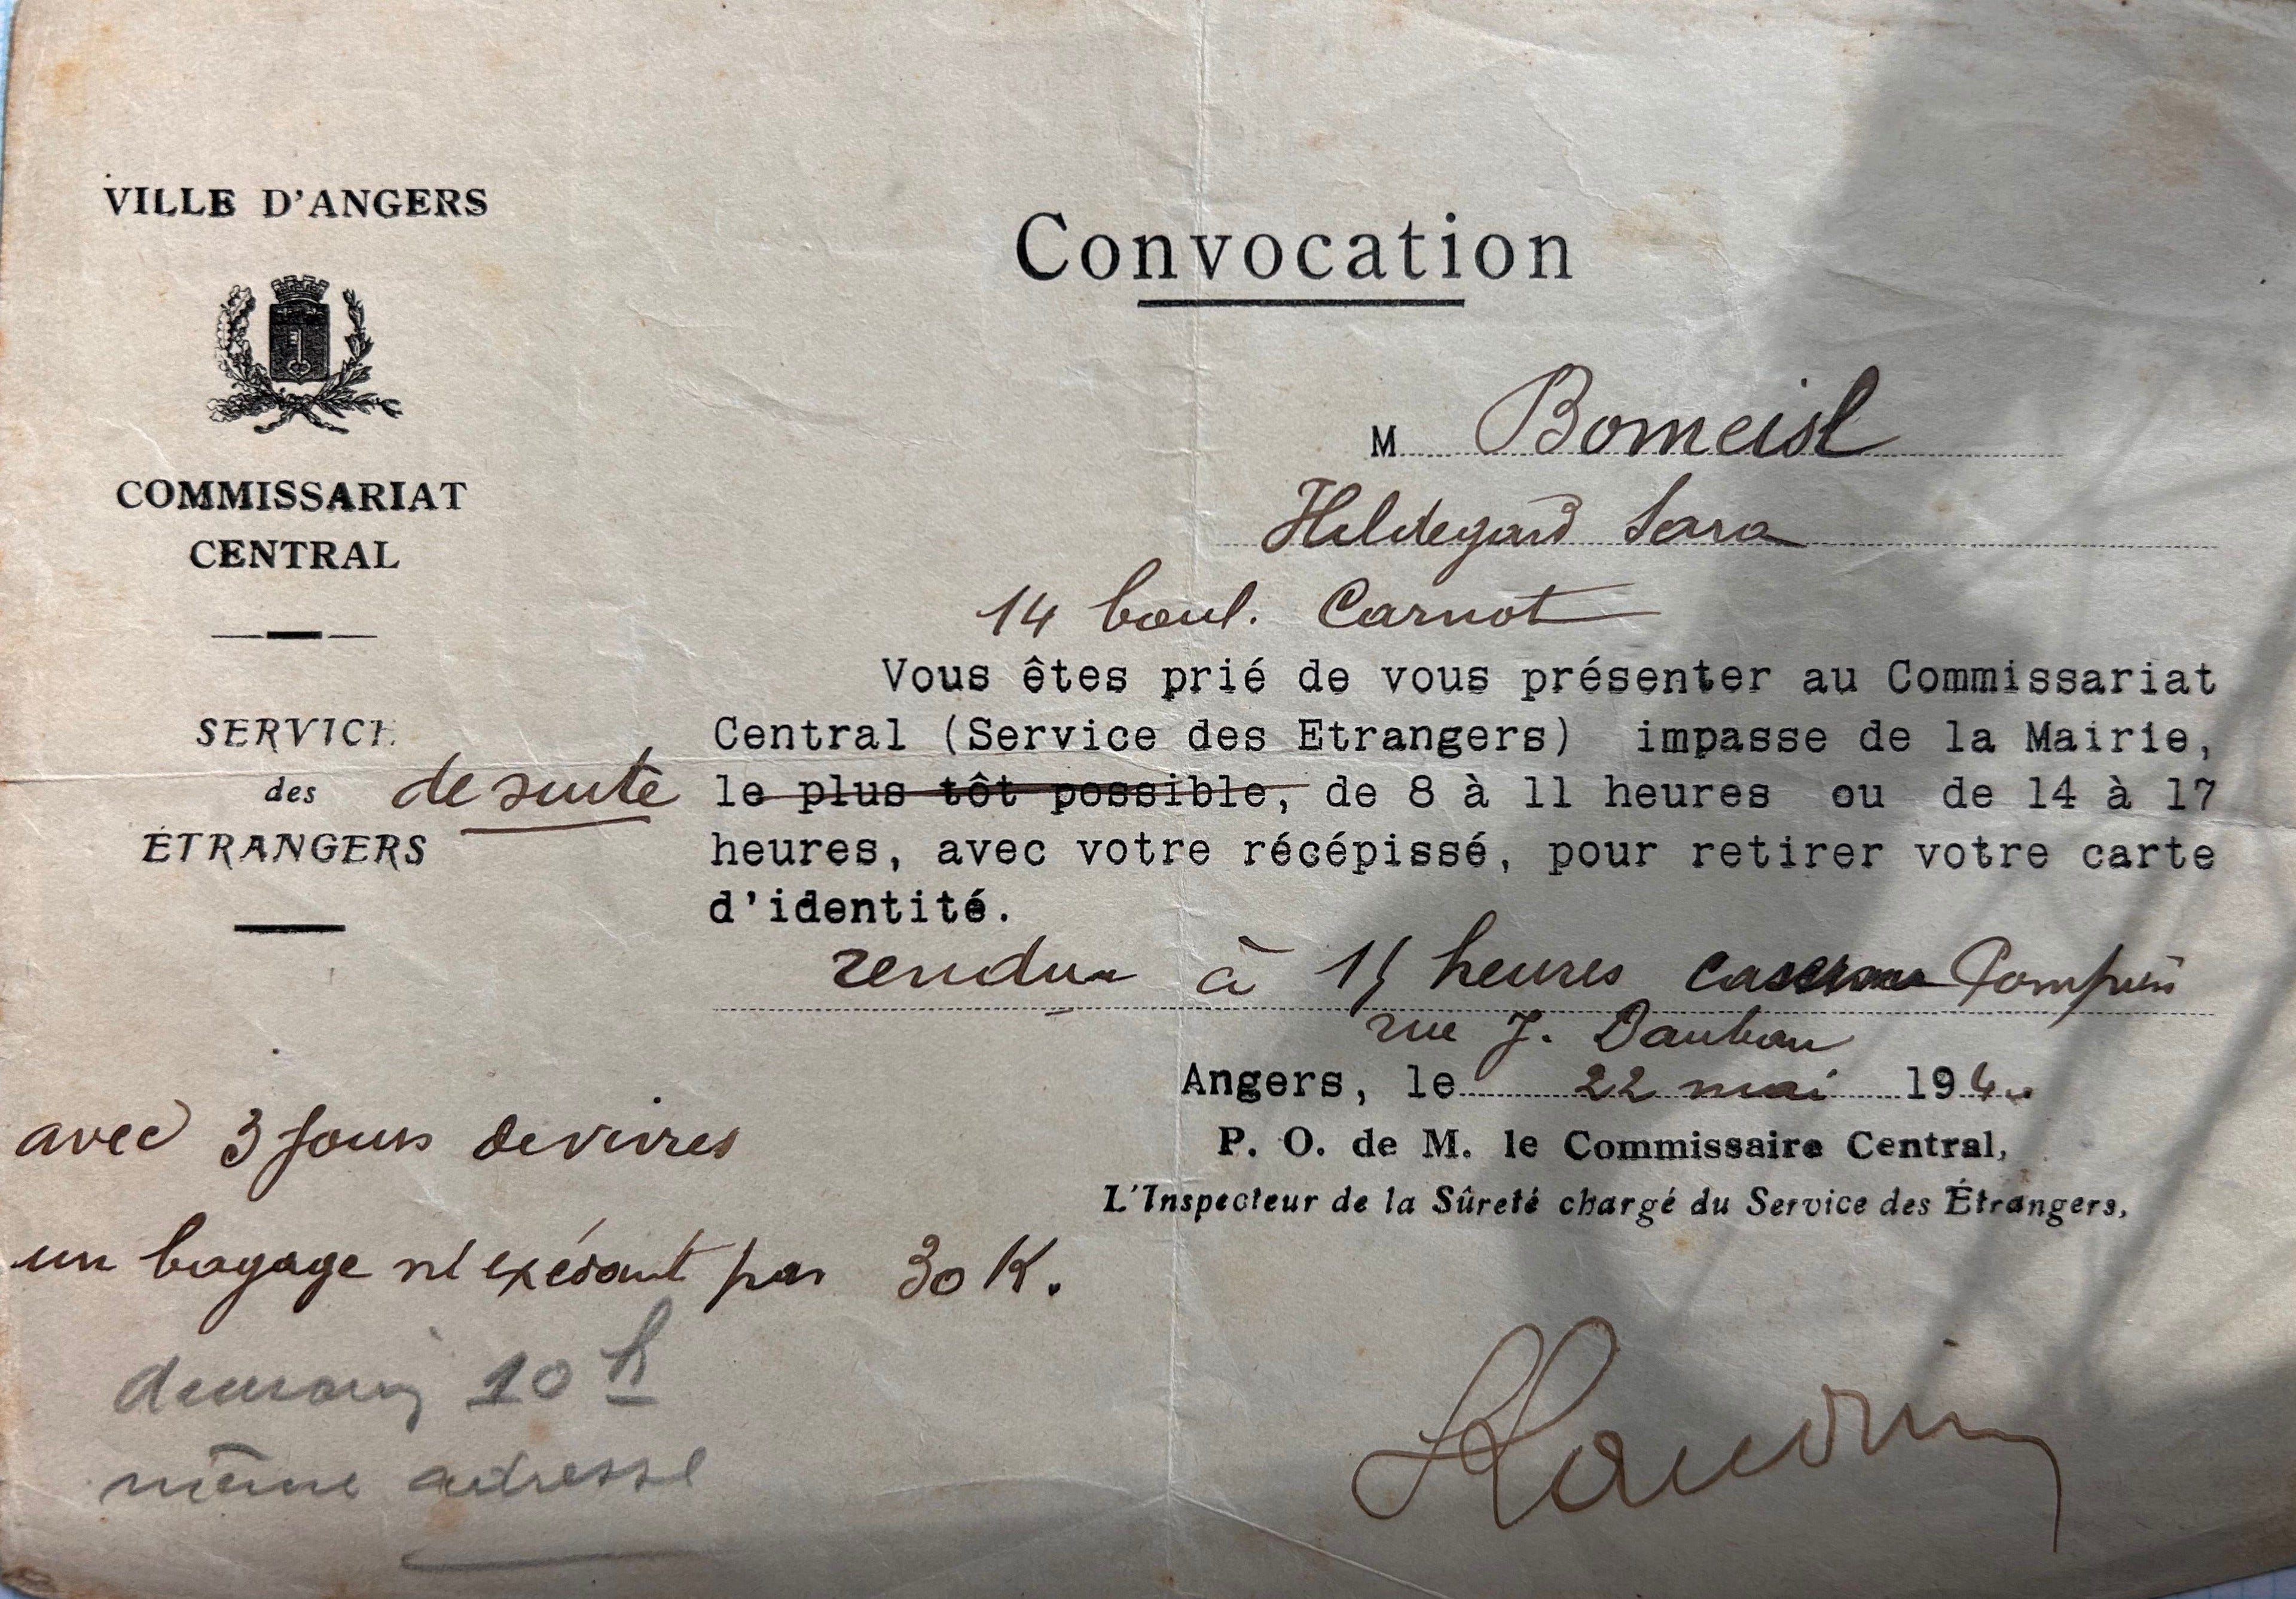 VILLE D'ANGERS
COMMISSARIAT
CENTRAL
SERVICE
des
ÉTRANGERS
Convocation
M Bomeisl
Hildegard Sara
14 boul. Carnot
Vous êtes prié de vous présenter au Commissariat
Central (Service des Etrangers) impasse de la Mairie,
de suite le plus tôt possible, de 8 à 11 heures ou de 14 à 17
heures, avec votre récépissé, pour retirer votre carte
d'identité.
rendu à 15 heures caserne Pompiers
rue J. Dauban
Angers, le 22 mai 1940
P. O. de M. le Commissaire Central,
L'Inspecteur de la Sûreté chargé du Service des Étrangers,
avec 3 jours de vivres
un bagage n'exédant pas 30 K.
demain 10 h
même adresse